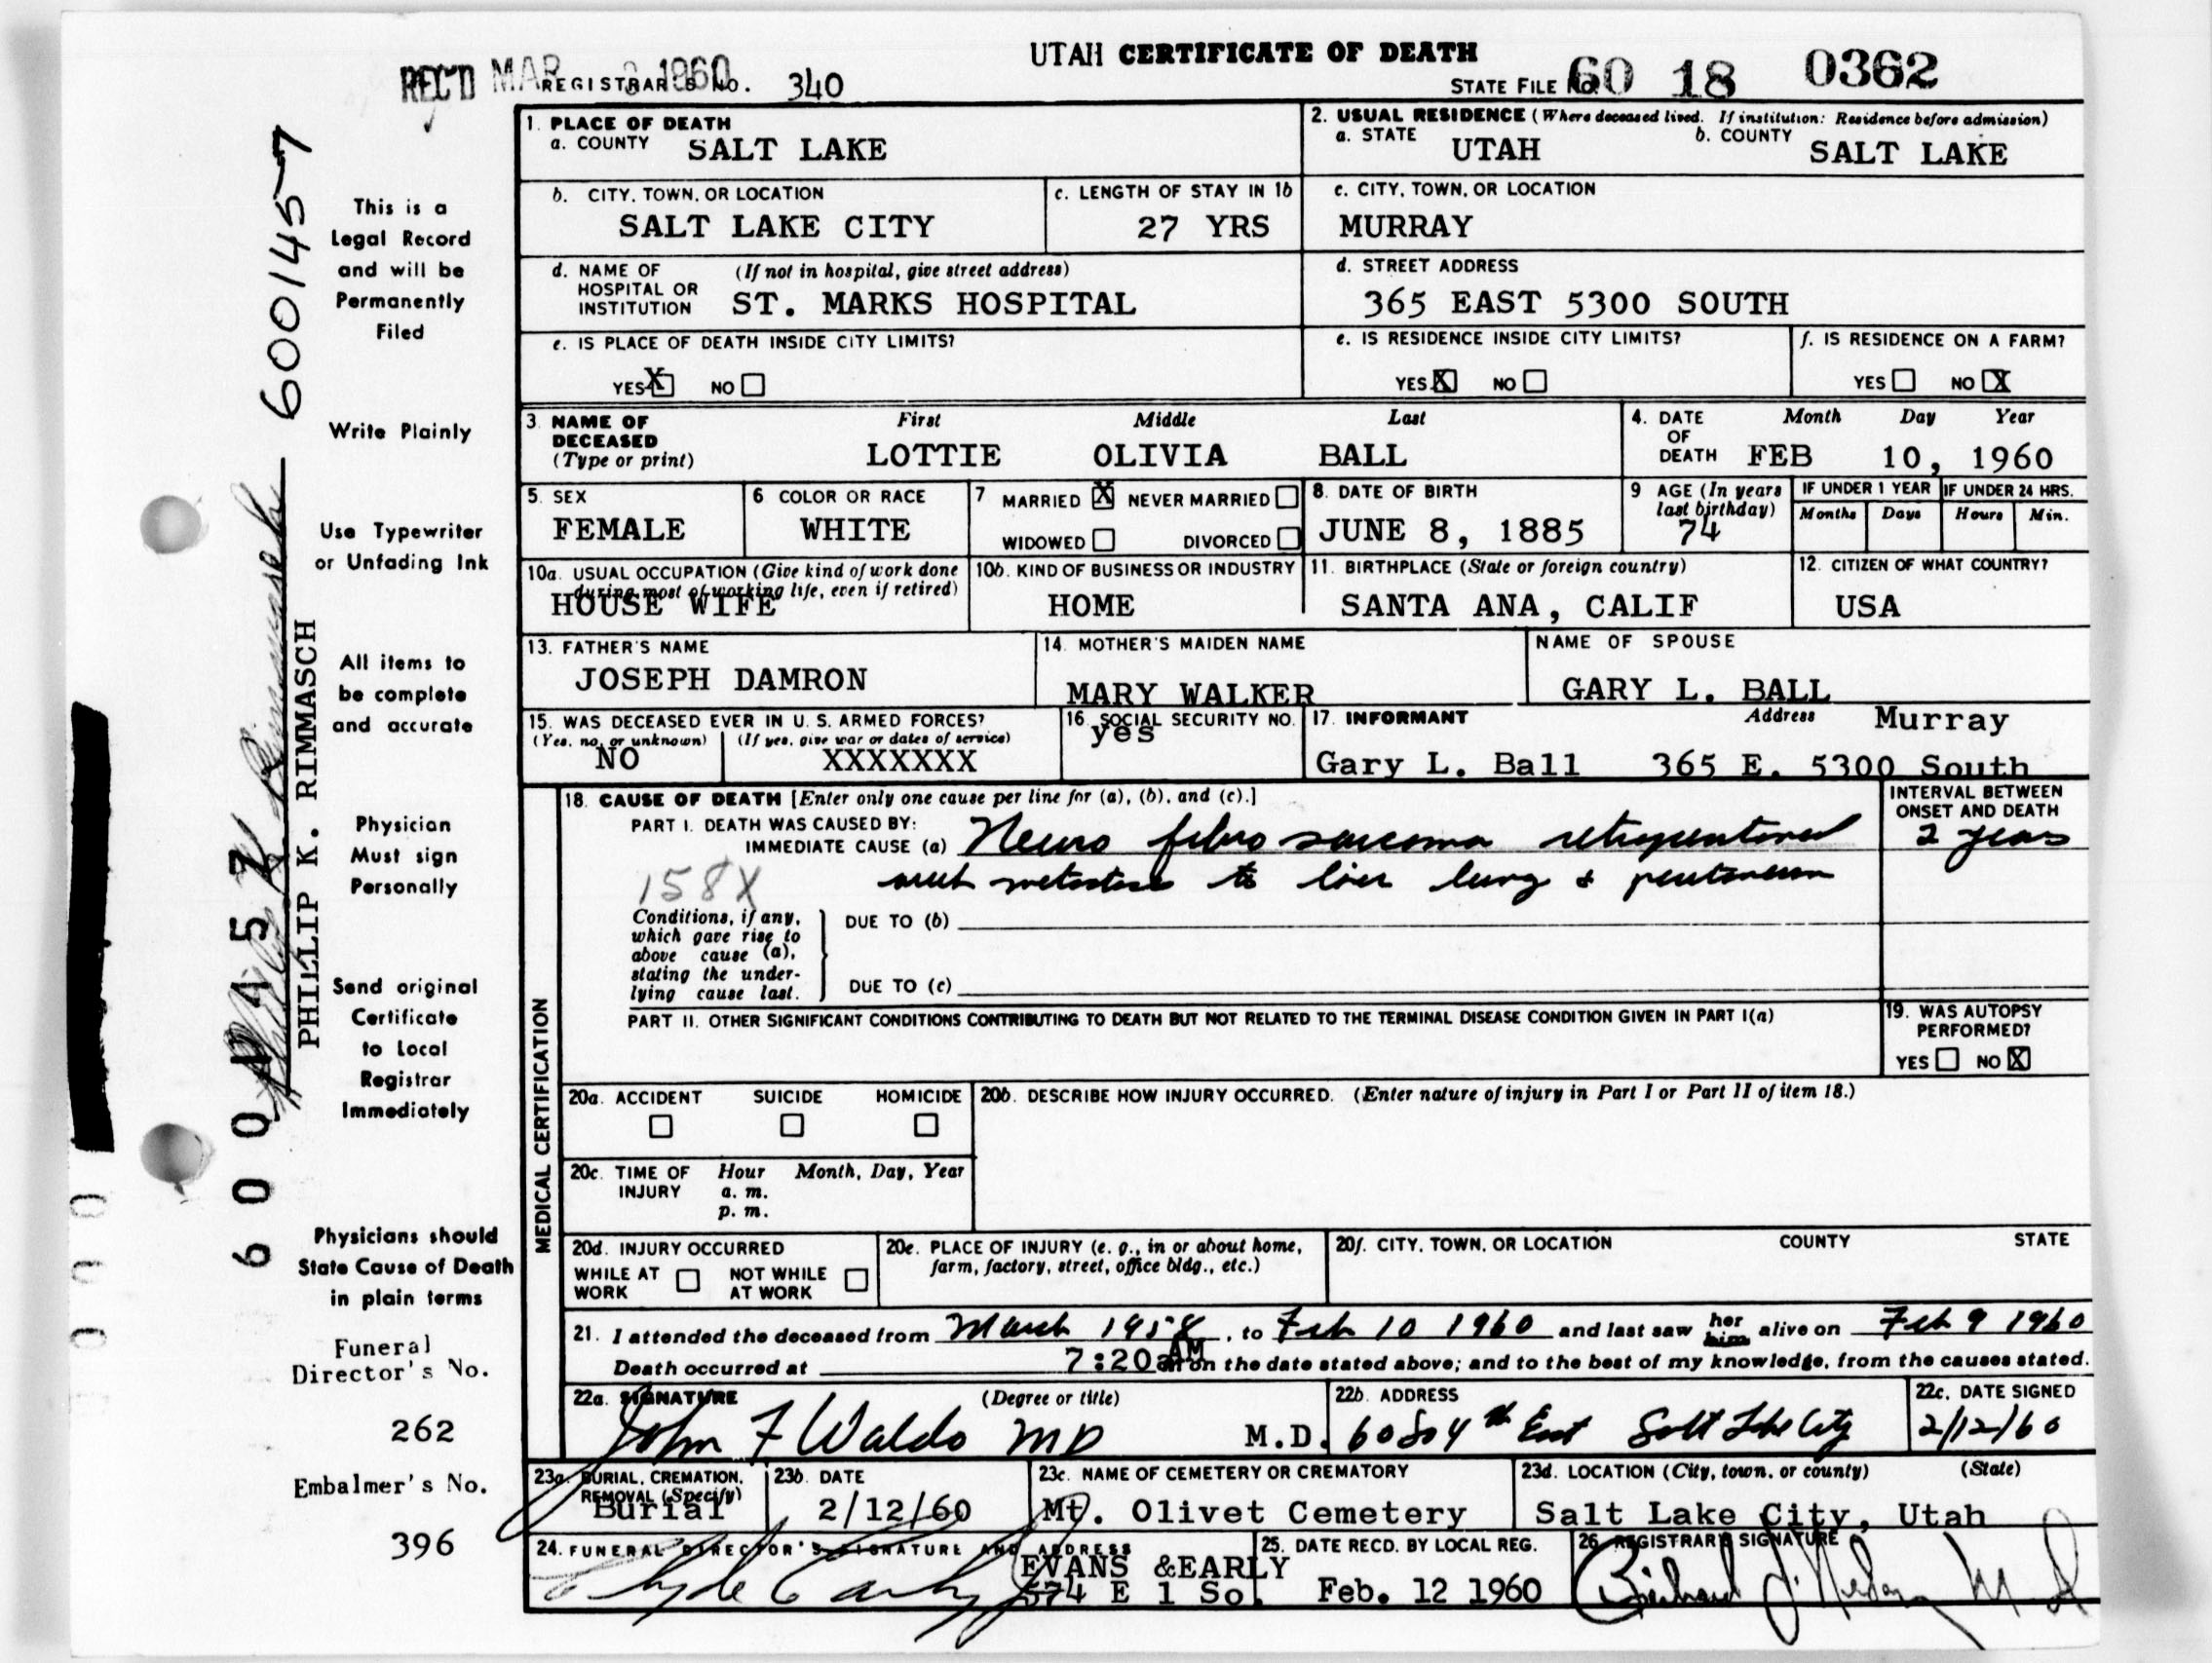 UTAH CERTIFICATE OF DEATH
REC'D MAR 1960 REGISTRAR'S NO. 340 STATE FILE NO. 60 18 0362
1. PLACE OF DEATH
a. COUNTY SALT LAKE
2. USUAL RESIDENCE (Where deceased lived. If institution: Residence before admission)
a. STATE UTAH b. COUNTY SALT LAKE
b. CITY, TOWN, OR LOCATION
SALT LAKE CITY
c. LENGTH OF STAY IN 1b
27 YRS
c. CITY, TOWN, OR LOCATION
MURRAY
d. NAME OF HOSPITAL OR INSTITUTION (If not in hospital, give street address)
ST. MARKS HOSPITAL
d. STREET ADDRESS
365 EAST 5300 SOUTH
e. IS PLACE OF DEATH INSIDE CITY LIMITS?
YES X NO
e. IS RESIDENCE INSIDE CITY LIMITS?
YES X NO
f. IS RESIDENCE ON A FARM?
YES NO X
3. NAME OF DECEASED (Type or print)
First Middle Last
LOTTIE OLIVIA BALL
4. DATE OF DEATH Month Day Year
FEB 10, 1960
5. SEX
FEMALE
6 COLOR OR RACE
WHITE
7 MARRIED X NEVER MARRIED
WIDOWED DIVORCED
8. DATE OF BIRTH
JUNE 8, 1885
9 AGE (In years last birthday)
74
IF UNDER 1 YEAR IF UNDER 24 HRS.
Months Days Hours Min.
10a. USUAL OCCUPATION (Give kind of work done during most of working life, even if retired)
HOUSE WIFE
10b. KIND OF BUSINESS OR INDUSTRY
HOME
11. BIRTHPLACE (State or foreign country)
SANTA ANA, CALIF
12. CITIZEN OF WHAT COUNTRY?
USA
13. FATHER'S NAME
JOSEPH DAMRON
14. MOTHER'S MAIDEN NAME
MARY WALKER
NAME OF SPOUSE
GARY L. BALL
15. WAS DECEASED EVER IN U. S. ARMED FORCES?
(Yes, no, or unknown) (If yes, give war or dates of service)
NO XXXXXXX
16. SOCIAL SECURITY NO.
yes
17. INFORMANT Address Murray
Gary L. Ball 365 E. 5300 South
MEDICAL CERTIFICATION
18. CAUSE OF DEATH [Enter only one cause per line for (a), (b), and (c).]
INTERVAL BETWEEN ONSET AND DEATH
PART I. DEATH WAS CAUSED BY:
IMMEDIATE CAUSE (a) Neuro fibro sarcoma retroperitoneal 2 years
158X with metastases to liver lung & peritoneum
Conditions, if any, which gave rise to above cause (a), stating the underlying cause last.
DUE TO (b)
DUE TO (c)
PART II. OTHER SIGNIFICANT CONDITIONS CONTRIBUTING TO DEATH BUT NOT RELATED TO THE TERMINAL DISEASE CONDITION GIVEN IN PART I(a)
19. WAS AUTOPSY PERFORMED?
YES NO X
20a. ACCIDENT SUICIDE HOMICIDE
20b. DESCRIBE HOW INJURY OCCURRED. (Enter nature of injury in Part I or Part II of item 18.)
20c. TIME OF INJURY Hour Month, Day, Year
a. m.
p. m.
20d. INJURY OCCURRED
WHILE AT WORK NOT WHILE AT WORK
20e. PLACE OF INJURY (e. g., in or about home, farm, factory, street, office bldg., etc.)
20f. CITY, TOWN, OR LOCATION COUNTY STATE
21. I attended the deceased from March 1958, to Feb 10 1960 and last saw her him alive on Feb 9 1960
Death occurred at 7:20 AM on the date stated above; and to the best of my knowledge, from the causes stated.
22a. SIGNATURE (Degree or title)
John F Waldo MD M.D.
22b. ADDRESS
60 So 4th East Salt Lake City
22c. DATE SIGNED
2/12/60
23a. BURIAL, CREMATION, REMOVAL (Specify)
Burial
23b. DATE
2/12/60
23c. NAME OF CEMETERY OR CREMATORY
Mt. Olivet Cemetery
23d. LOCATION (City, town, or county) (State)
Salt Lake City, Utah
24. FUNERAL DIRECTOR'S SIGNATURE AND ADDRESS
EVANS &EARLY
574 E 1 So.
25. DATE RECD. BY LOCAL REG.
Feb. 12 1960
26. REGISTRAR'S SIGNATURE
This is a
Legal Record
and will be
Permanently
Filed
Write Plainly
Use Typewriter
or Unfading Ink
All items to
be complete
and accurate
Physician
Must sign
Personally
Send original
Certificate
to Local
Registrar
Immediately
Physicians should
State Cause of Death
in plain terms
Funeral
Director's No.
262
Embalmer's No.
396
PHILLIP K. RIMMASCH
6001457